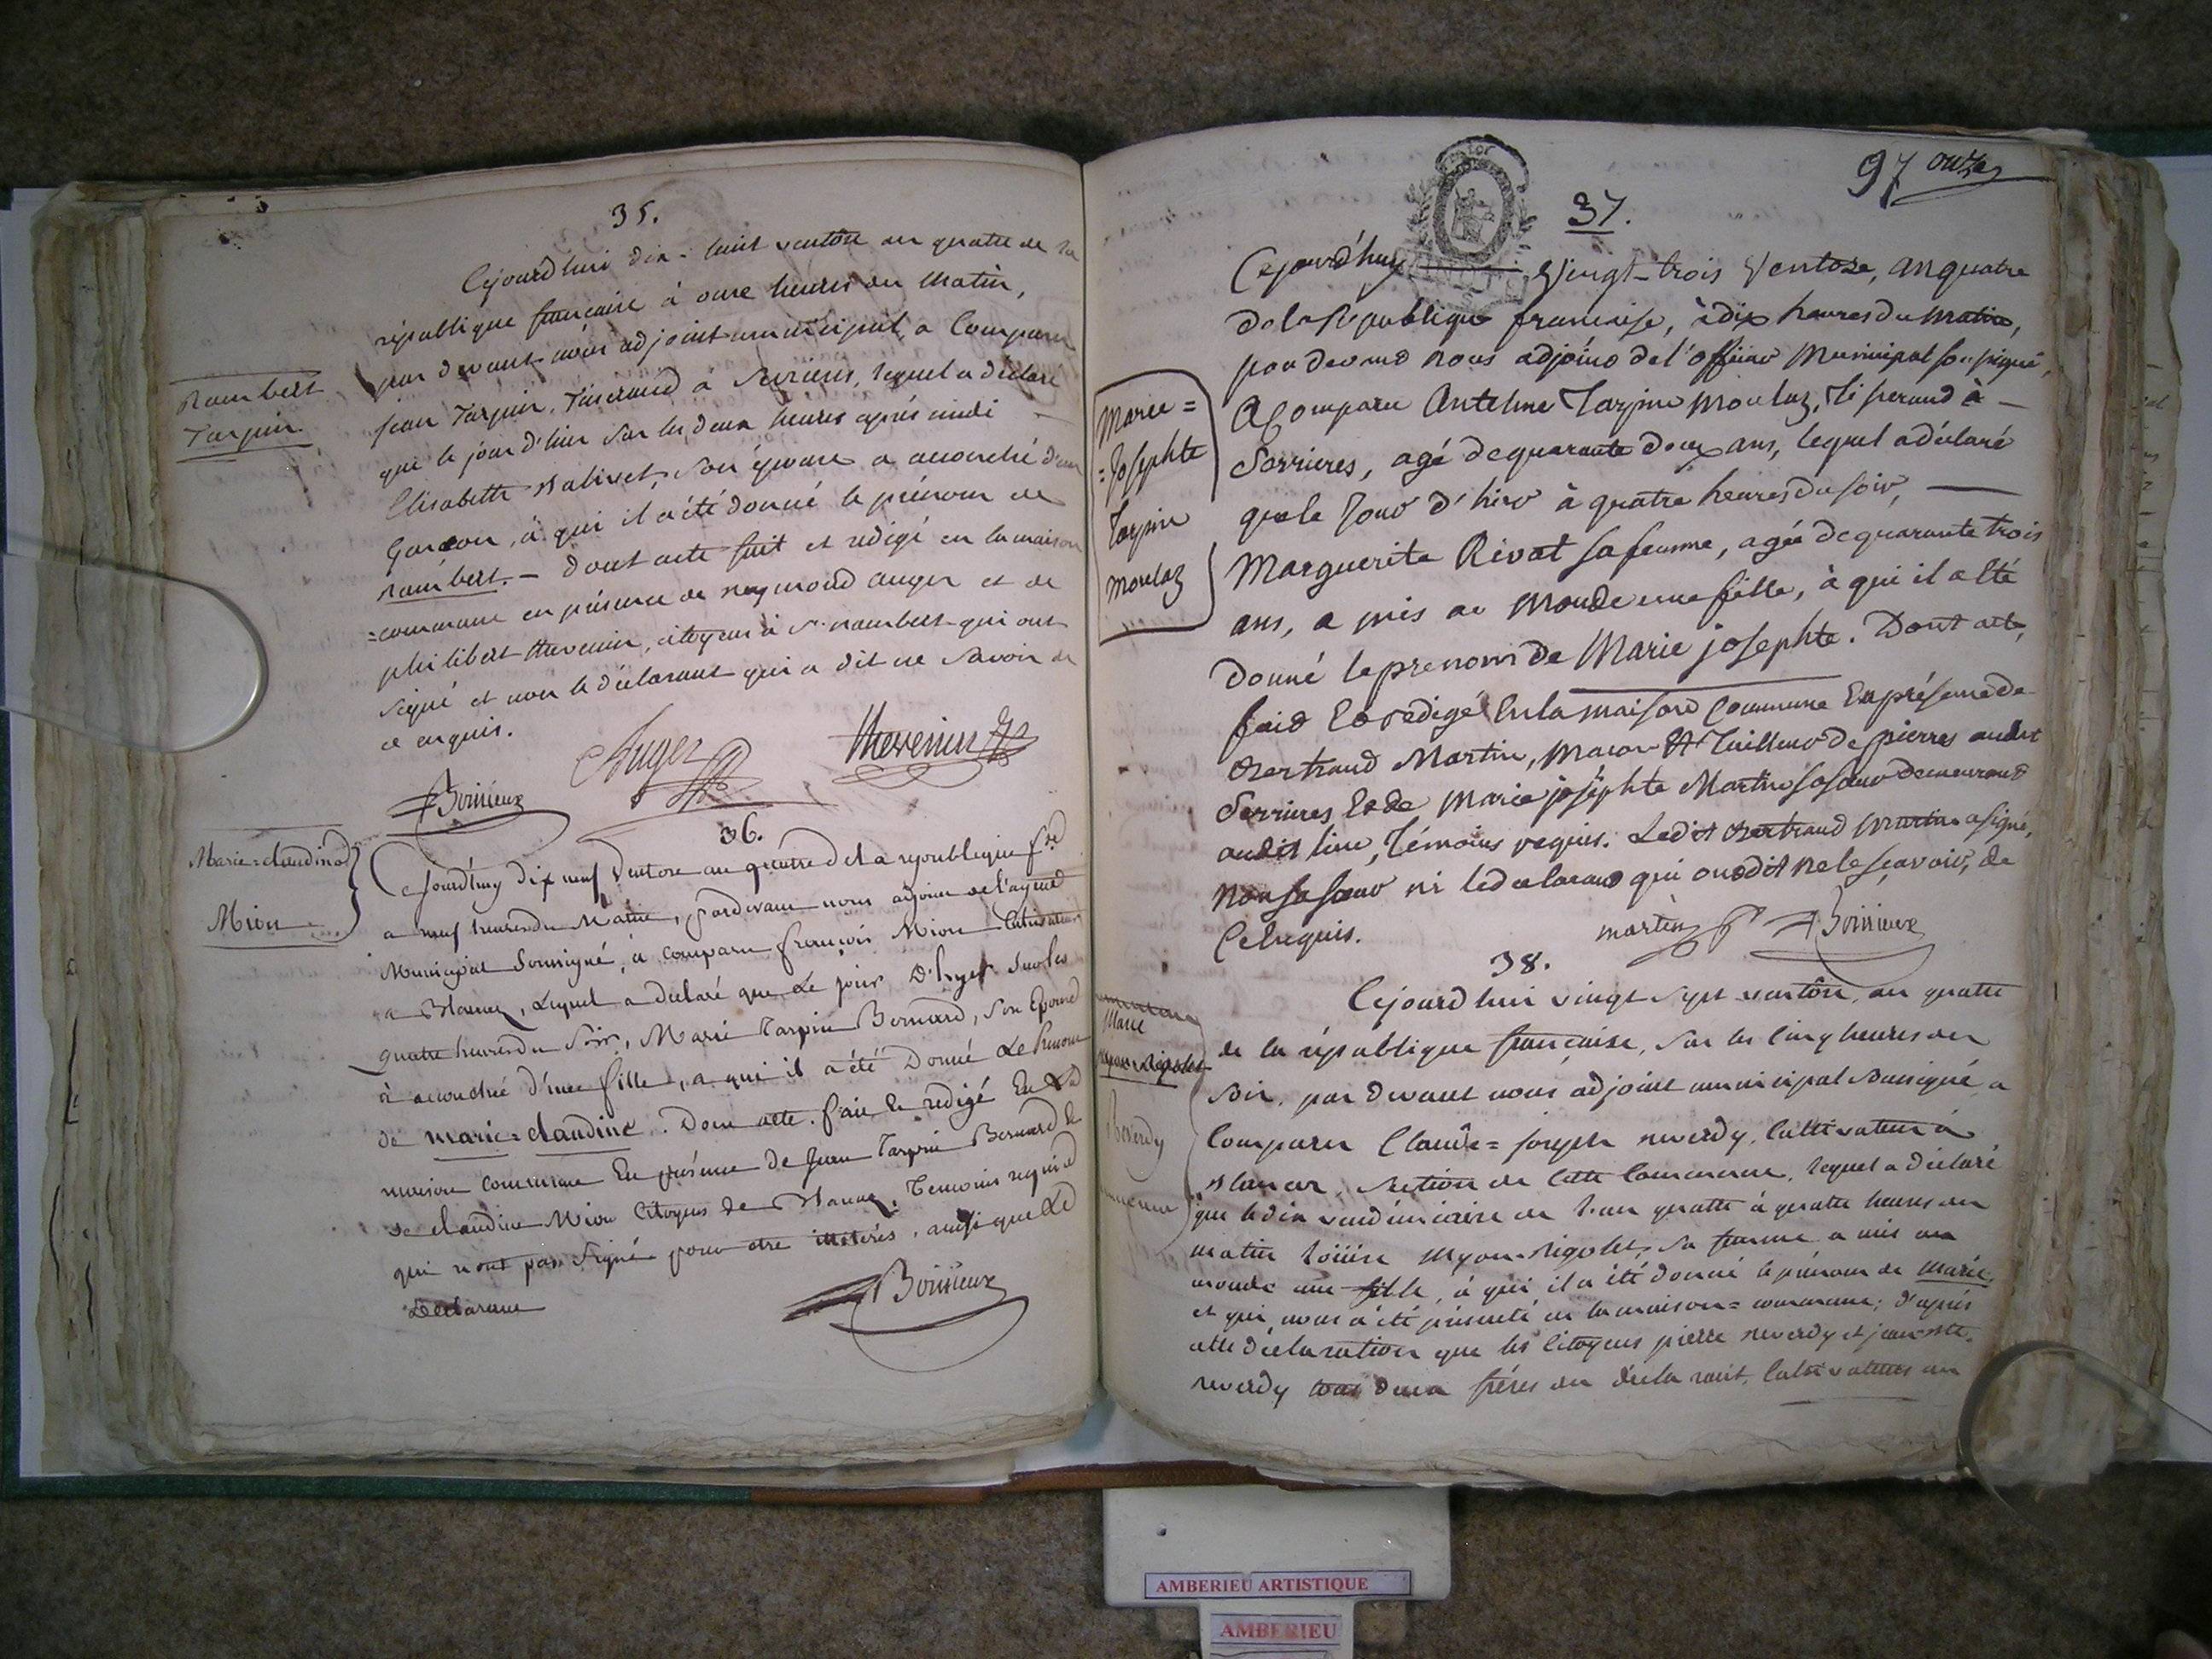 35.
Rambert
Tarpin
Cejourd'hui dix-huit ventôse an quatre de la
république française à onze heures du matin,
par devant nous adjoint municipal, a Comparu
jean Tarpin, Tisserand à Serrieres, lequel a déclaré
que le jour d'hier sur les deux heures après midi
Elisabeth Balivet, son épouse a accouché d'un
Garçon, à qui il a été donné le prénom de
rambert. - dont acte fait et redigé en la maison
=commune en présence de raymond auger et de
philibert thevenin, citoyens à st. rambert qui ont
signé et non le déclarant qui a dit ne savoir de
ce enquis.
Auger
thevenin
Boissieux
36.
Marie=claudine
Mion
Cejourdhuy dix neuf Ventose an quatre de la republique f.se
a neuf heures du Matin, pardevant nous adjoint de l'agent
Municipal Soussigné, à comparu françois Mion Cultivateur
a , Lequel a declaré que Le jour D'hyer sur les
quatre heures du Soir, Marie Tarpin Bernard, Son Epouse
à accouché d'une fille, a qui il a été Donné Le Prenom
de marie=claudine. Dont acte. fait & redigé En La
maison commune En présence de Jean Tarpin Bernard &
de claudine Mion Citoyens de , Temoins requis
qui n'ont pas Signé pour etre illiterés, ainsi que Le
Declarant
Boissieux
97 onze
37.
Marie=
=Josephte
Tarpin
moulaz
Cejourd'huy Vingt-trois Ventose, an quatre
de la République francaise, à dix heures du matin,
par devant nous adjoint de l'officier Municipal soussigné,
a Comparu Antelme Tarpin moulaz, tisserand à
Serrieres, agé de quarante deux ans, lequel a déclaré
que le Jour d'hier à quatre heures du soir,
Marguerite Rivat sa femme, agée de quarante trois
ans, a mis au monde une fille, à qui il a été
donné le prenom de Marie josephte. Dont acte,
fait & redigé En la maison Commune En présence de
Bertrand Martin, macon & Tailleur de pierres audit
Serrieres & de Marie josephte Martin sa soeur demeurant
audit lieu, Témoins requis. Ledit Bertrand martin a signé,
non sa soeur ni le declarant qui ont dit ne le sçavoir, de
Ce Enquis.
martin
Boissieux
38.
Marie
myon-Rigolet
Reverdy
Cejourd'hui vingt sept ventôse, an quatre
de la république française, sur les cinq heures du
soir, par devant nous adjoint municipal soussigné a
Comparu Claude=joseph reverdy, cultivateur à
, section de cette commune, lequel a déclaré
que le dix vendémiaire de l'an quatre à quatre heures du
matin loüise myon-rigolet, sa femme a mis au
monde une fille, à qui il a été donné le prénom de marie,
et qui nous a été présenté en la maison=commune; d'après
cette déclaration que les citoyens pierre reverdy et jean-bte.
reverdy tous deux frères du déclarant, cultivateurs au
AMBERIEU ARTISTIQUE
AMBERIEU